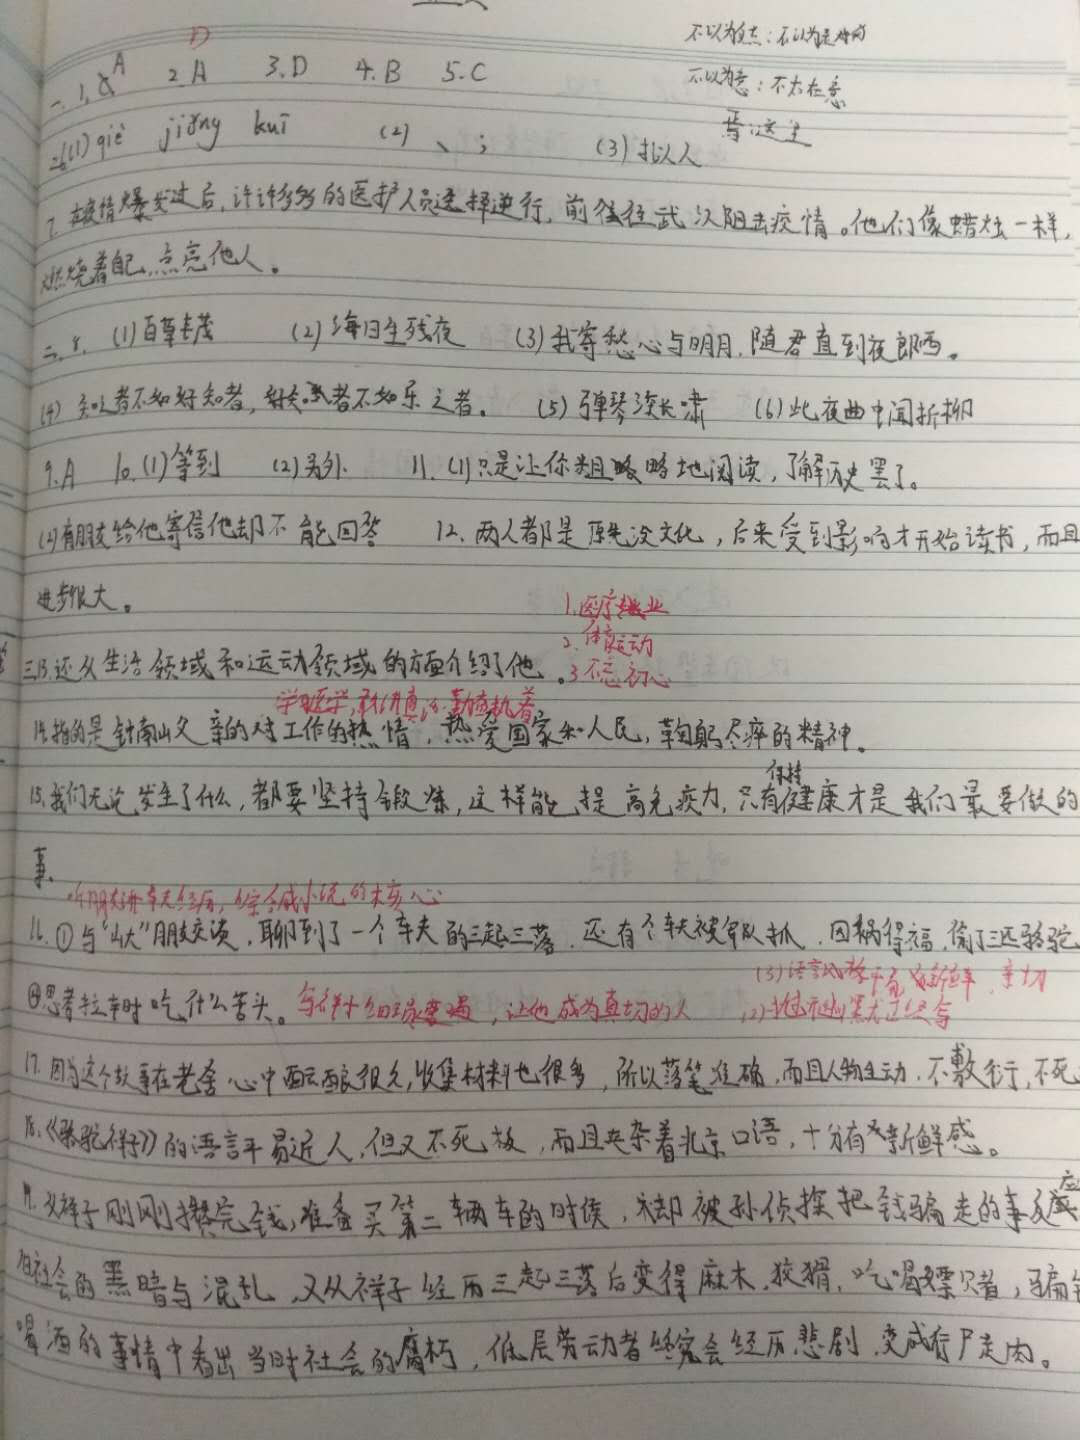 不以为然：不认为是对的
D
一、1. A 2. A 3. D 4. B 5. C
不以为意：不太在意
焉：这里
二6(1) qiè jiǒng kuī (2) 、； (3) 拟人
7. 在疫情爆发过后，许许多多的医护人员选择逆行，前往往武汉阻击疫情。他们像蜡烛一样，
燃烧着自己，点亮他人。
二、8. (1) 百草丰茂 (2) 海日生残夜 (3) 我寄愁心与明月，随君直到夜郎西。
(4) 知之者不如好知者，好知者不如乐之者。 (5) 弹琴复长啸 (6) 此夜曲中闻折柳
9. A 10. (1) 等到 (2) 另外 11. (1) 只是让你粗略略地阅读，了解历史罢了。
(2) 有朋友给他寄信他却不能回答 12. 两人都是原先没文化，后来受到影响才开始读书，而且
进步很大。
1. 医疗
2. 体育运动
三13. 还从生活领域和运动领域的方面介绍了他。 3 不忘初心
学习医学，勤奋执着
14. 指的是钟南山父亲的对工作的热情，热爱国家和人民，鞠躬尽瘁的精神。
保持
15. 我们无论发生了什么，都要坚持锻炼，这样能提高免疫力，只有健康才是我们最要做的
事。
听朋友讲车夫经历，综合成小说的核心
16. ①与“山大”朋友交谈，聊到了一个车夫的三起三落，还有个车夫被军队抓，因祸得福，偷了三匹骆驼
(3) 语言 亲切
④思考拉车时吃什么苦头。 让他成为真切的人
17. 因为这个故事在老舍心中酝酿很久，收集材料也很多，所以落笔准确，而且人物生动，不敷衍，不死
18. 《骆驼祥子》的语言平易近人，但又不死板，而且夹杂着北京口语，十分有新鲜感。
19. 从祥子刚刚攒完钱，准备买第二辆车的时候，却被孙侦探把钱骗走的事反应
旧社会的黑暗与混乱，又从祥子经历三起三落后变得麻木，狡猾，吃喝嫖赌，骗钱
喝酒的事情中看出当时社会的腐朽，低层劳动者终究会经历悲剧，变成行尸走肉。